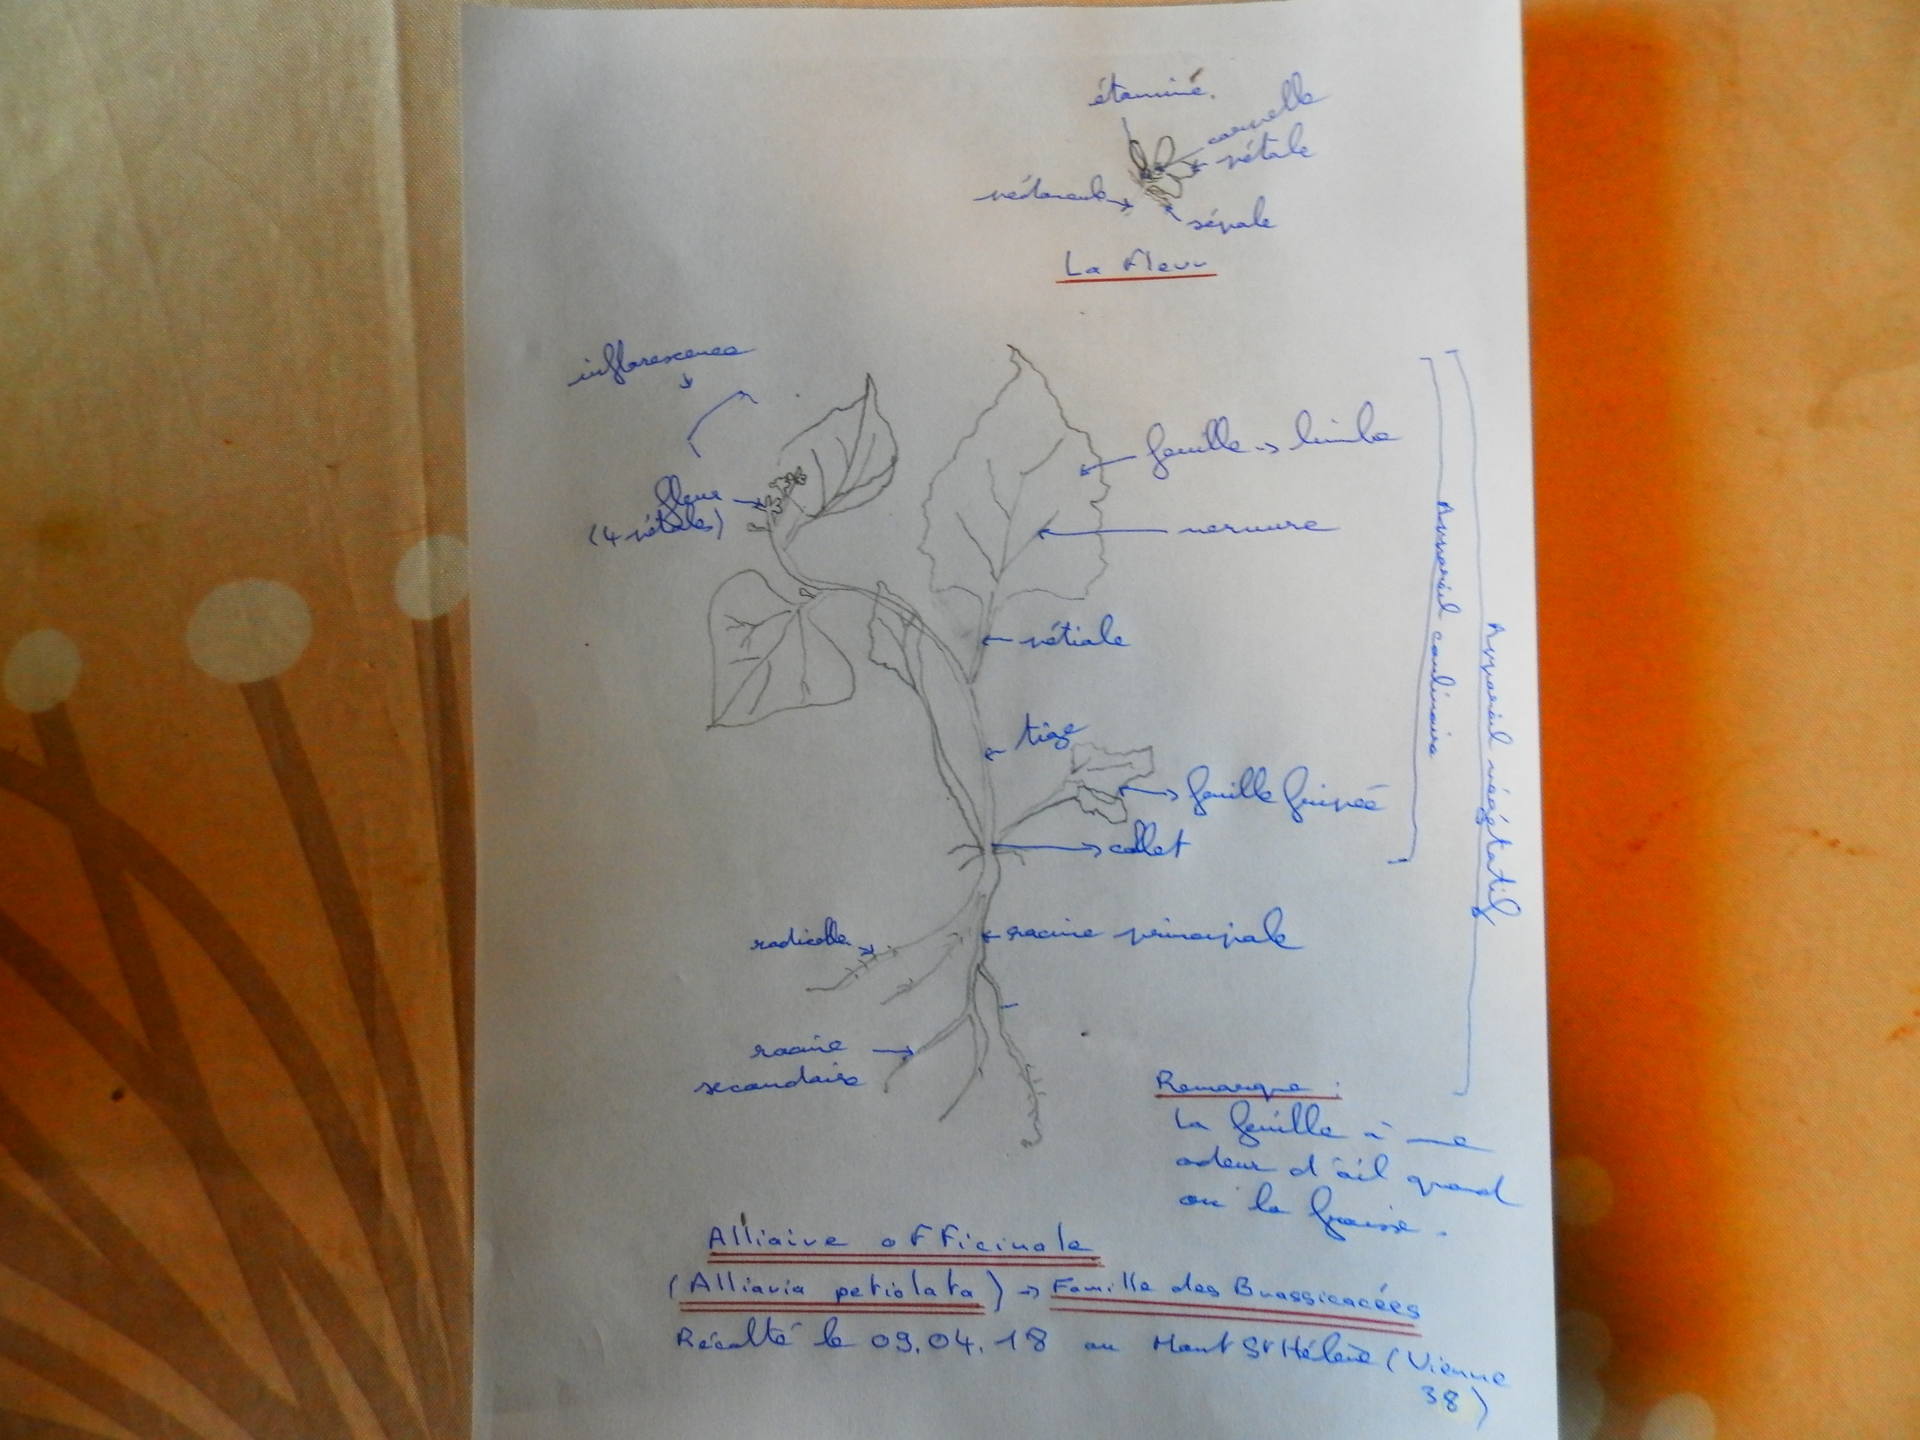 étaminé.
carpelle
pétale
pédoncule
sépale
La Fleur
inflorescence
feuille -> limbe
fleur
(4 pétales)
nervure
Appareil caulinaire
Appareil végétatif
pétiole
tige
feuille fripée
collet
radicelle
racine principale
racine
secondaire
Remarque :
La feuille à une
odeur d'ail quand
on la froisse.
Alliaire officinale
(Alliaria petiolata) -> Famille des Brassicacées
Récolté le 09.04.18 au Mont St Hélène (Vienne
38)